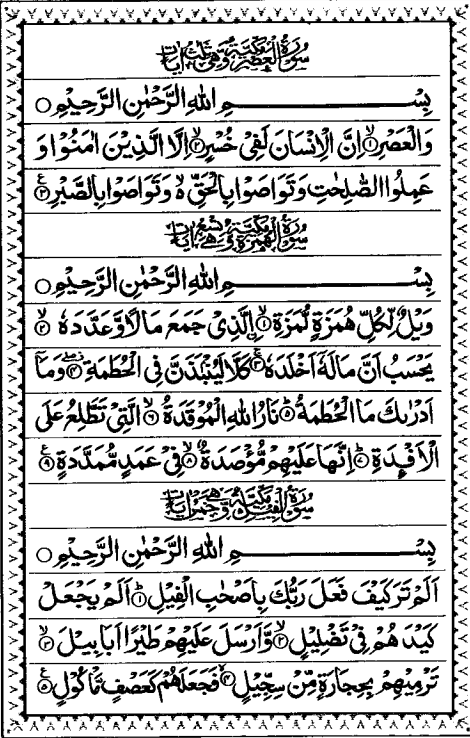 سُوْرَةُ الْعَصْرِ مَكِّيَّةٌ وَّهِيَ ثَلٰثُ اٰيَاتٍ
بِسْــــــــــــــــمِ اللهِ الرَّحْمٰنِ الرَّحِيْمِ ○
وَالْعَصْرِ ۙ﴿۱﴾ اِنَّ الْاِنْسَانَ لَفِيْ خُسْرٍ ۙ﴿۲﴾ اِلَّا الَّذِيْنَ اٰمَنُوْا وَ
عَمِلُوا الصّٰلِحٰتِ وَتَوَاصَوْا بِالْحَقِّ ۙ۬ وَتَوَاصَوْا بِالصَّبْرِ ﴿۳﴾
سُوْرَةُ الْهُمَزَةِ مَكِّيَّةٌ وَّهِيَ تِسْعُ اٰيَاتٍ
بِسْــــــــــــــــمِ اللهِ الرَّحْمٰنِ الرَّحِيْمِ ○
وَيْلٌ لِّكُلِّ هُمَزَةٍ لُّمَزَةِ ۙ﴿۱﴾ اِلَّذِيْ جَمَعَ مَالًا وَّعَدَّدَهٗ ۙ﴿۲﴾
يَحْسَبُ اَنَّ مَالَهٗۤ اَخْلَدَهٗ ۚ﴿۳﴾ كَلَّا لَيُنْۢبَذَنَّ فِي الْحُطَمَةِ ۖ﴿۴﴾ وَمَاۤ
اَدْرٰىكَ مَا الْحُطَمَةُ ؕ﴿۵﴾ نَارُ اللهِ الْمُوْقَدَةُ ۙ﴿۶﴾ الَّتِيْ تَطَّلِعُ عَلَى
الْاَفْـِٕدَةِ ؕ﴿۷﴾ اِنَّهَا عَلَيْهِمْ مُّؤْصَدَةٌ ۙ﴿۸﴾ فِيْ عَمَدٍ مُّمَدَّدَةٍ ﴿۹﴾
سُوْرَةُ الْفِيْلِ مَكِّيَّةٌ وَّهِيَ خَمْسُ اٰيَاتٍ
بِسْــــــــــــــــمِ اللهِ الرَّحْمٰنِ الرَّحِيْمِ ○
اَلَمْ تَرَ كَيْفَ فَعَلَ رَبُّكَ بِاَصْحٰبِ الْفِيْلِ ؕ﴿۱﴾ اَلَمْ يَجْعَلْ
كَيْدَهُمْ فِيْ تَضْلِيْلٍ ۙ﴿۲﴾ وَّاَرْسَلَ عَلَيْهِمْ طَيْرًا اَبَابِيْلَ ۙ﴿۳﴾
تَرْمِيْهِمْ بِحِجَارَةٍ مِّنْ سِجِّيْلٍ ۙ﴿۴﴾ فَجَعَلَهُمْ كَعَصْفٍ مَّاْكُوْلٍ ﴿۵﴾